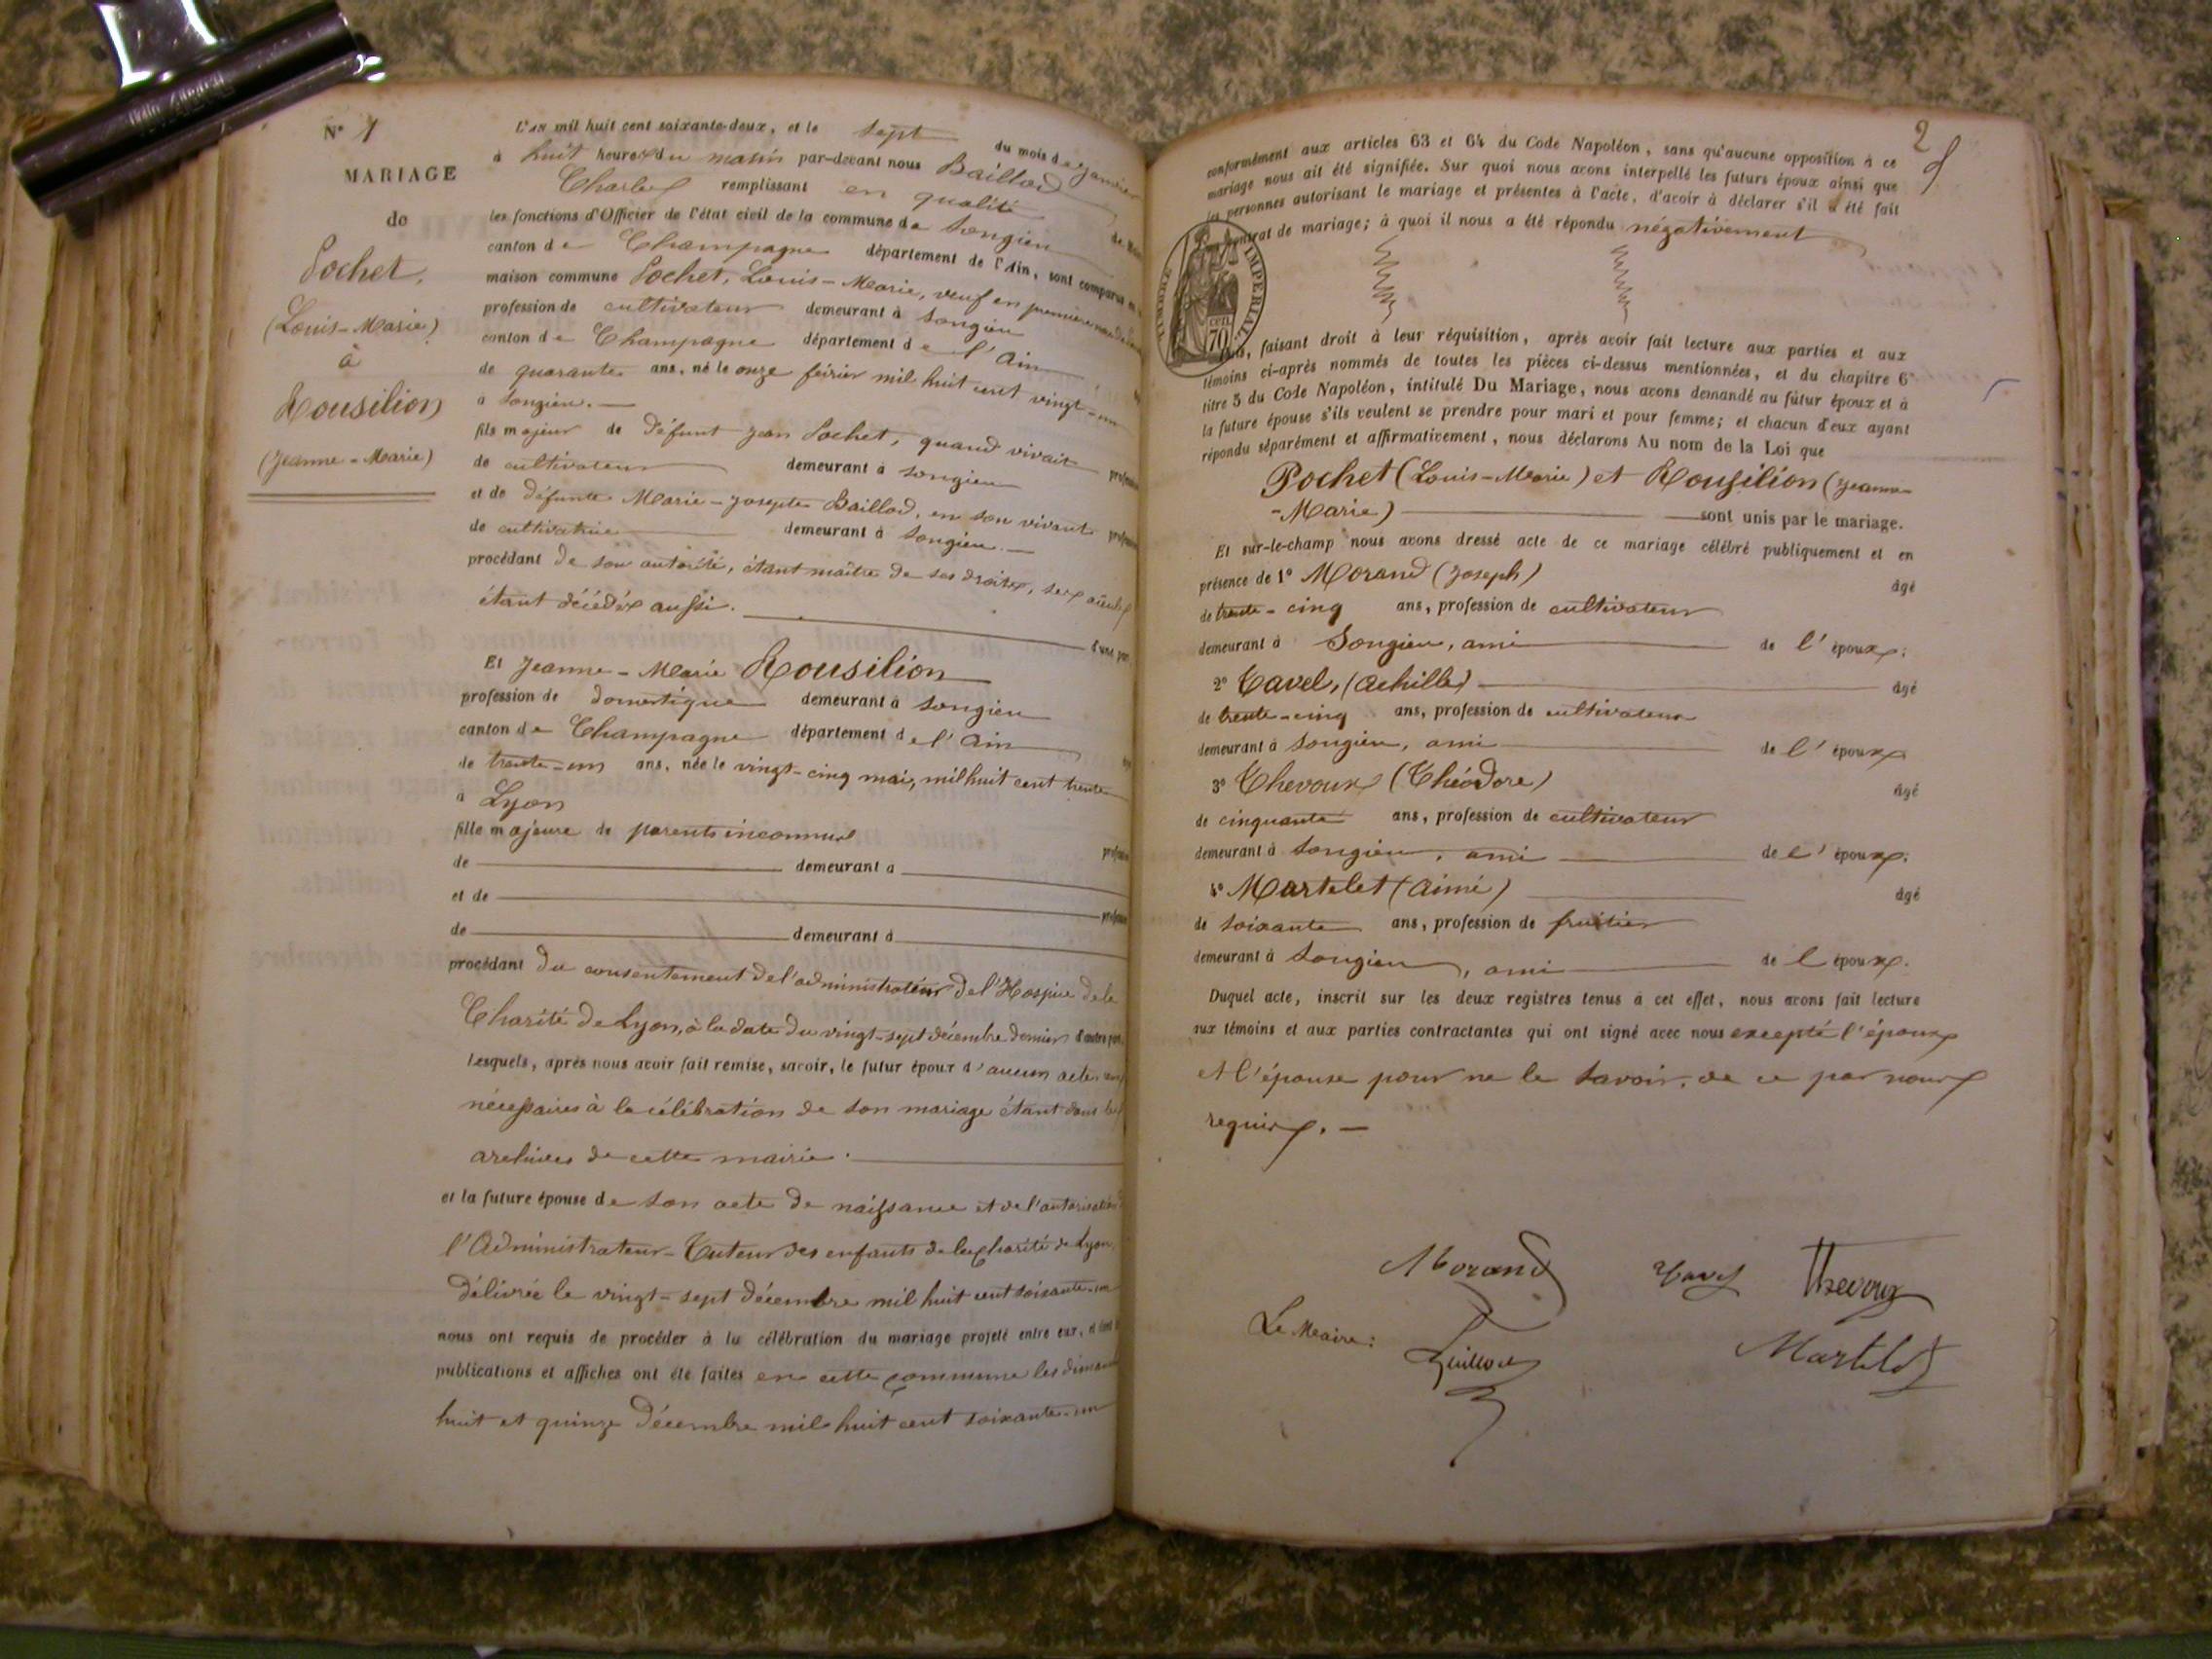 N° 1
MARIAGE
de
Pochet,
(Louis-Marie)
à
Rousilion
(Jeanne-Marie)
L'an mil huit cent soixante-deux, et le sept du mois de janvier
à huit heures du matin par-devant nous Baillod
Charles remplissant en qualité de
les fonctions d'Officier de l'état civil de la commune de Songieu
canton de Champagne département de l'Ain, sont comparus
maison commune Pochet, Louis-Marie, veuf en première
profession de cultivateur demeurant à Songieu
canton de Champagne département de l'Ain
de quarante ans, né le onze février mil huit cent vingt-un
à Songieu.
fils majeur de défunt Jean Pochet, quand vivait
de cultivateur demeurant à Songieu
et de défunte Marie-Josepte Baillod, en son vivant
de cultivatrice demeurant à Songieu.
procédant de son autorité, étant maître de ses droits, ses aïeuls
étant décédés aussi.
d'une part
Et Jeanne-Marie Rousilion
profession de domestique demeurant à Songieu
canton de Champagne département de l'Ain
de trente-un ans, née le vingt-cinq mai, mil huit cent trente
à Lyon
fille majeure de parents inconnus
de demeurant à
et de
de demeurant à
procédant du consentement de l'administrateur de l'Hospice de la
Charité de Lyon, à la date du vingt-sept décembre dernier d'autre part.
Lesquels, après nous avoir fait remise, savoir, le futur époux d'aucun acte
nécessaires à la célébration de son mariage étant dans les
archives de cette mairie.
et la future épouse de son acte de naissance et de l'autorisation
l'Administrateur-Tuteur des enfants de la Charité de Lyon,
délivrée le vingt-sept décembre mil huit cent soixante-un
nous ont requis de procéder à la célébration du mariage projeté entre eux, et dont
publications et affiches ont été faites en cette commune les
huit et quinze décembre mil huit cent soixante-un
2
conformément aux articles 63 et 64 du Code Napoléon, sans qu'aucune opposition à ce
mariage nous ait été signifiée. Sur quoi nous avons interpellé les futurs époux ainsi que
les personnes autorisant le mariage et présentes à l'acte, d'avoir à déclarer s'il a été fait
contrat de mariage; à quoi il nous a été répondu négativement
TIMBRE IMPERIAL
70 cen
Nous, faisant droit à leur réquisition, après avoir fait lecture aux parties et aux
témoins ci-après nommés de toutes les pièces ci-dessus mentionnées, et du chapitre 6
titre 5 du Code Napoléon, intitulé Du Mariage, nous avons demandé au futur époux et à
la future épouse s'ils veulent se prendre pour mari et pour femme; et chacun d'eux ayant
répondu séparément et affirmativement, nous déclarons Au nom de la Loi que
Pochet (Louis-Marie) et Rousilion (Jeanne-
-Marie) sont unis par le mariage.
Et sur-le-champ nous avons dressé acte de ce mariage célébré publiquement et en
présence de 1° Morand (Joseph) âgé
de trente-cinq ans, profession de cultivateur
demeurant à Songieu, ami de l'époux;
2° Tavel, (Achille) âgé
de trente-cinq ans, profession de cultivateur
demeurant à Songieu, ami de l'époux
3° Thevoux (Théodore) âgé
de cinquante ans, profession de cultivateur
demeurant à Songieu, ami de l'époux;
4° Martelet (Aimé) âgé
de soixante ans, profession de fruitier
demeurant à Songieu, ami de l'époux.
Duquel acte, inscrit sur les deux registres tenus à cet effet, nous avons fait lecture
aux témoins et aux parties contractantes qui ont signé avec nous excepté l'époux
et l'épouse pour ne le savoir, de ce par nous
requis.
Morand Tavel Thevoux
Le Maire: Baillod Martelet